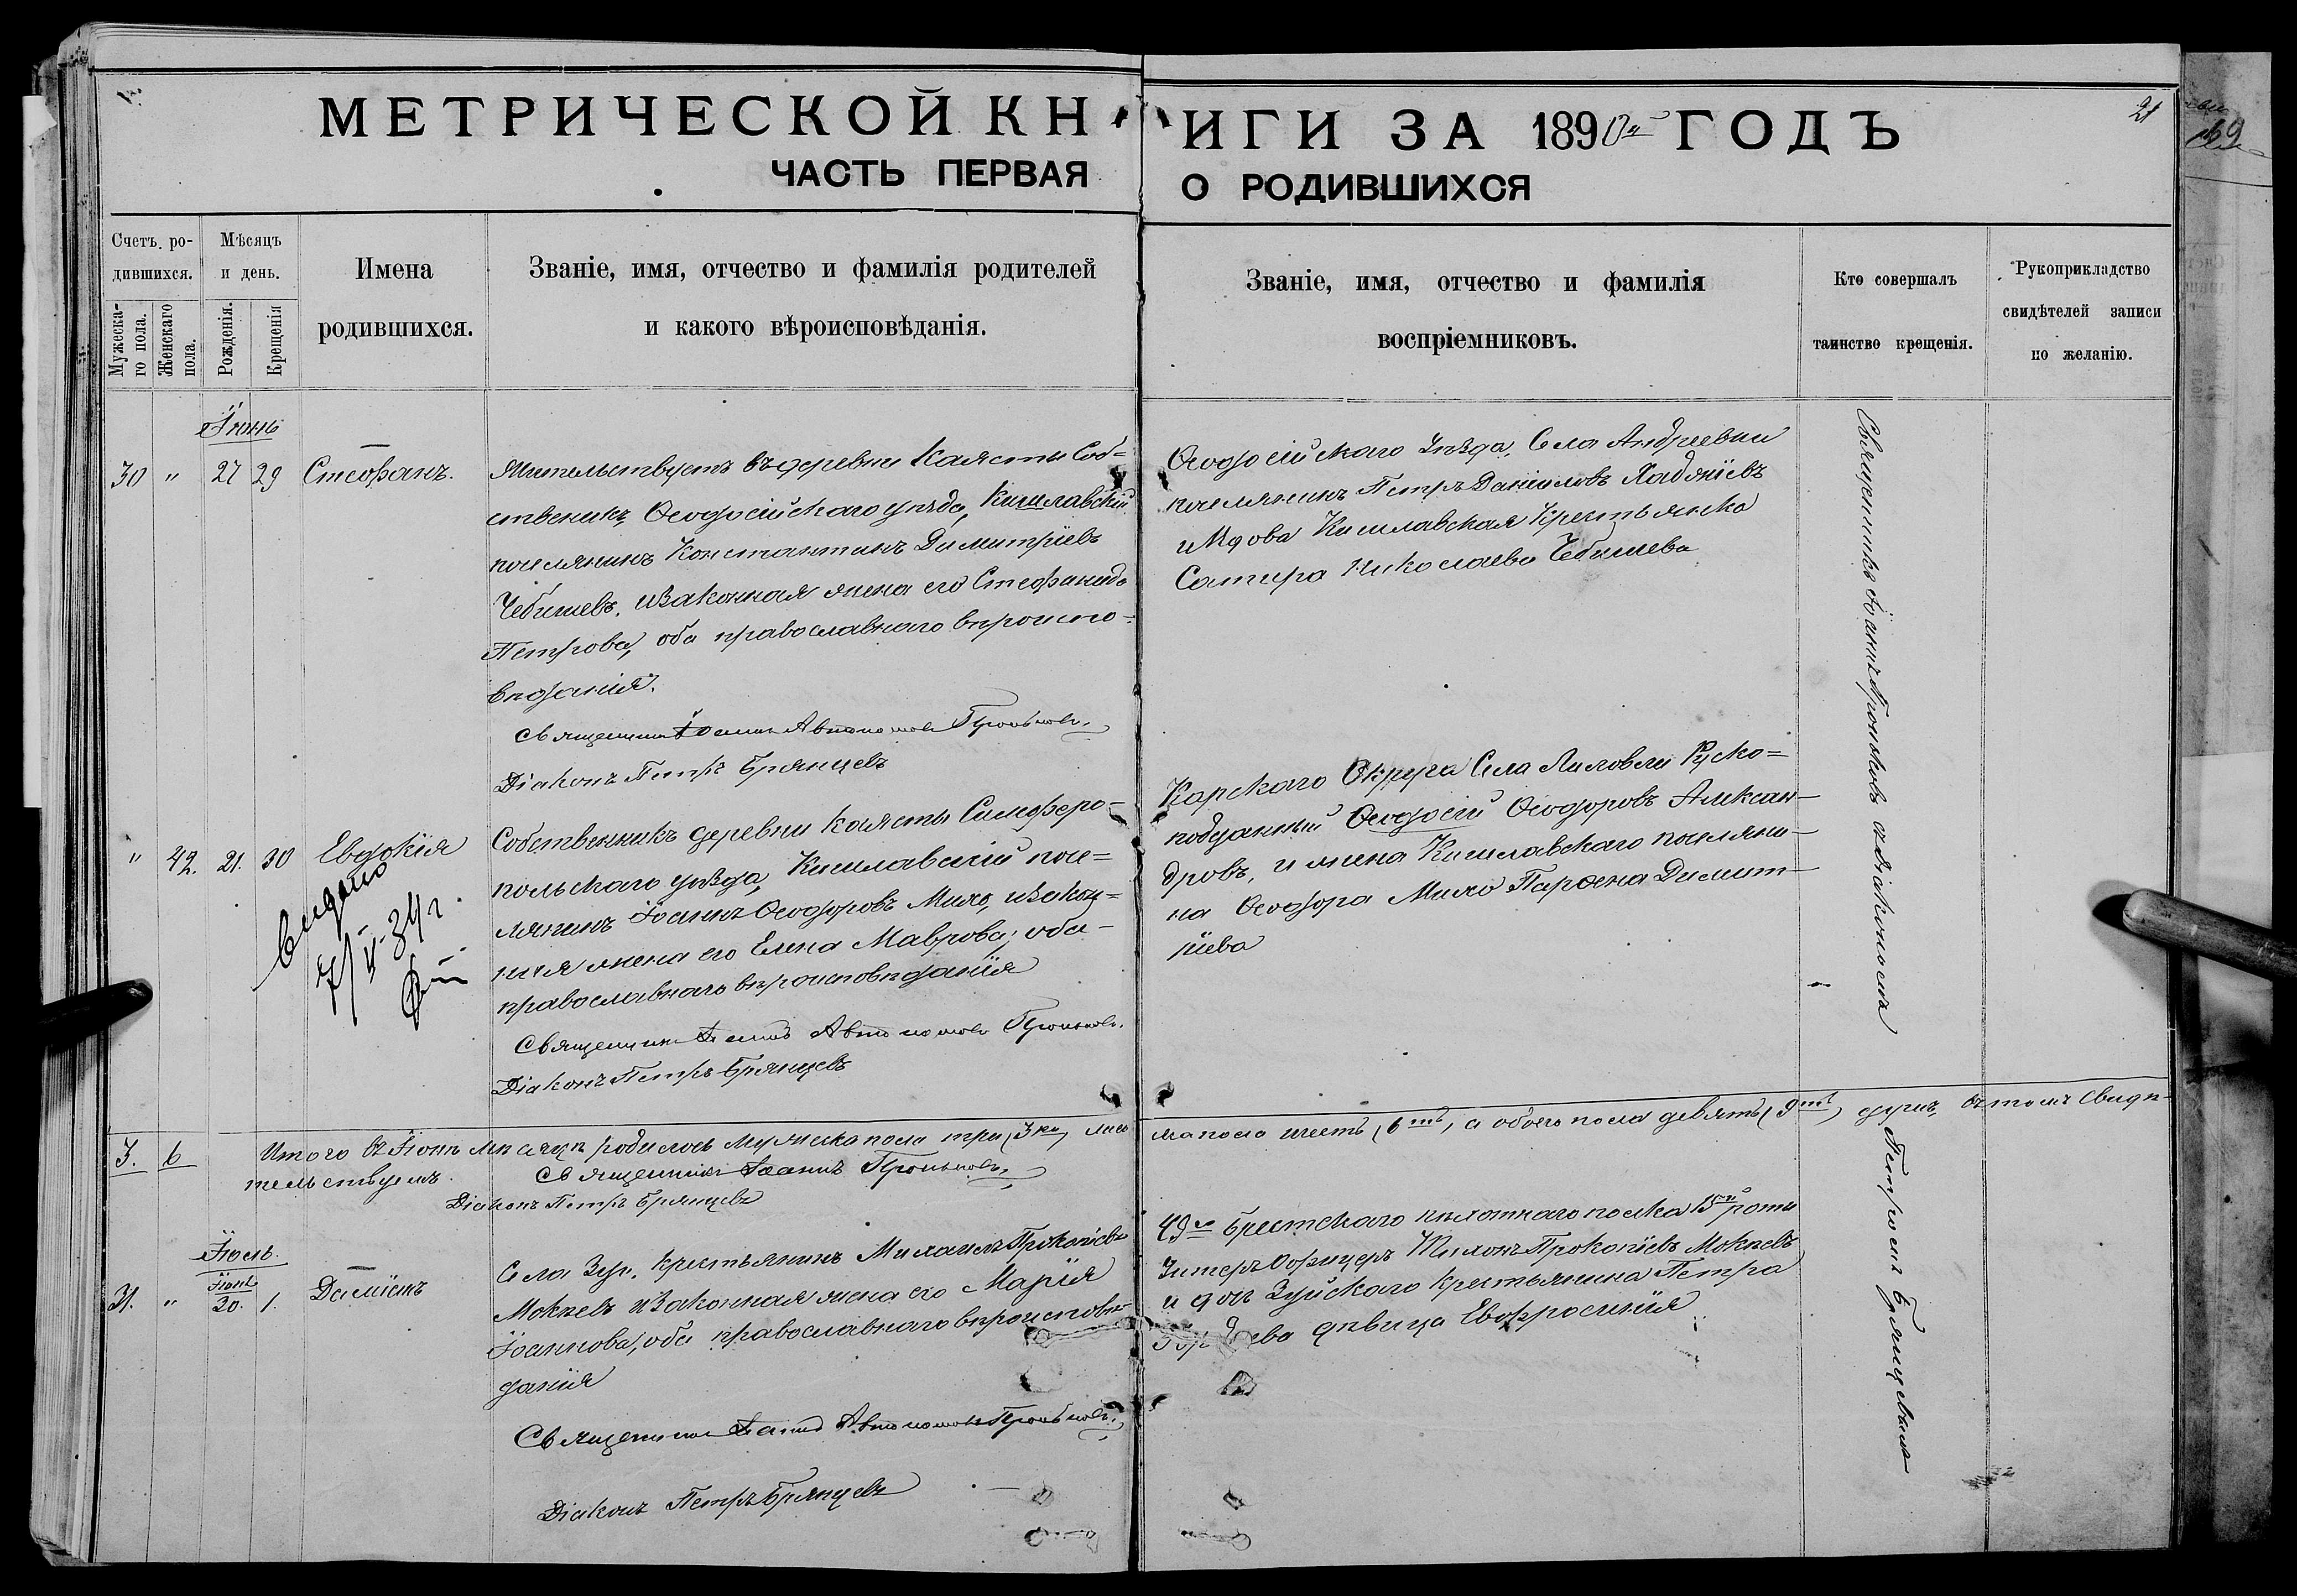 МЕТРИЧЕСКОЙ КНИГИ ЗА 1890й ГОДЪ
21
ЧАСТЬ ПЕРВАЯ О РОДИВШИХСЯ
Счетъ ро-
дившихся.
Мужеска-
го пола.
Женскаго
пола.
Мѣсяцъ
и день.
Рожденія.
Крещенія
Имена
родившихся.
Званіе, имя, отчество и фамилія родителей
и какого вѣроисповѣданія.
Званіе, имя, отчество и фамилія
воспріемниковъ.
Кто совершалъ
таинство крещенія.
Рукоприкладство
свидѣтелей записи
по желанію.
Іюнь
30 " 27 29 Стефанъ.
Жительствуетъ въ деревни Каясты Соб=
ственикъ Ѳеодосійскаго уѣзда, Кишлавскій
поселянинъ Константинъ Димитріевъ
Чебишевъ, и законная жена его Стефанида
Петрова, оба православнаго вѣроиспо-
вѣданія.
Священникъ Іоаннъ Автономовъ Троньковъ
Діаконъ Петръ Брянцевъ
Ѳеодосійскаго Уѣзда, Села Андреевки
поселянинъ Петръ Даніиловъ Хаджіевъ
и Вдова Кишлавская Крестьянка
Сатира Николаева Чебишева
Священникъ Іоаннъ Троньковъ съ діакономъ
Петромъ Брянцевымъ
" 42. 21. 30 Евдокія
Видано
7/V-34г.
Собственникъ деревни Каясты Симферо-
польскаго уѣзда, Кишлавскій посе=
лянинъ Іоаннъ Ѳеодоровъ Михо, и закон=
ная жена его Елена Маврова, оба-
православнаго вѣроисповѣданія
Священникъ Іоаннъ Автономовъ Троньковъ.
Діаконъ Петръ Брянцевъ
Карскаго Округа Села Руско=
подданный Ѳеодосій Ѳеодоровъ Алексан-
дровъ, и жена Кишлавскаго поселяни-
на Ѳеодора Михо Парѳена Димит-
ріева
3. 6 Итого въ Іюнѣ мѣсяцѣ родилось мужеска пола три (3ри), жен
ска пола шесть (6ть), а обоего пола девять (9ть) душъ, въ томъ Свидѣ-
тельствуемъ.
Священникъ Іоаннъ Троньковъ.
Діаконъ Петръ Брянцевъ
Іюль.
31. " Іюня 20. 1. Даміанъ
Села Зуи, крестьянинъ Михаилъ Прокопіевъ
Мокѣевъ и Законная жена его Марія
Іоаннова, оба православнаго вѣроисповѣ-
данія
Священникъ Іоаннъ Автономовъ Троньковъ.
Діаконъ Петръ Брянцевъ
49го Брестскаго пѣхотнаго полка 15й роты
Унтеръ Офицеръ Тихонъ Прокопіевъ Мокѣевъ
и дочь Зуйскаго крестьянина Петра
дѣвица Евфросинія